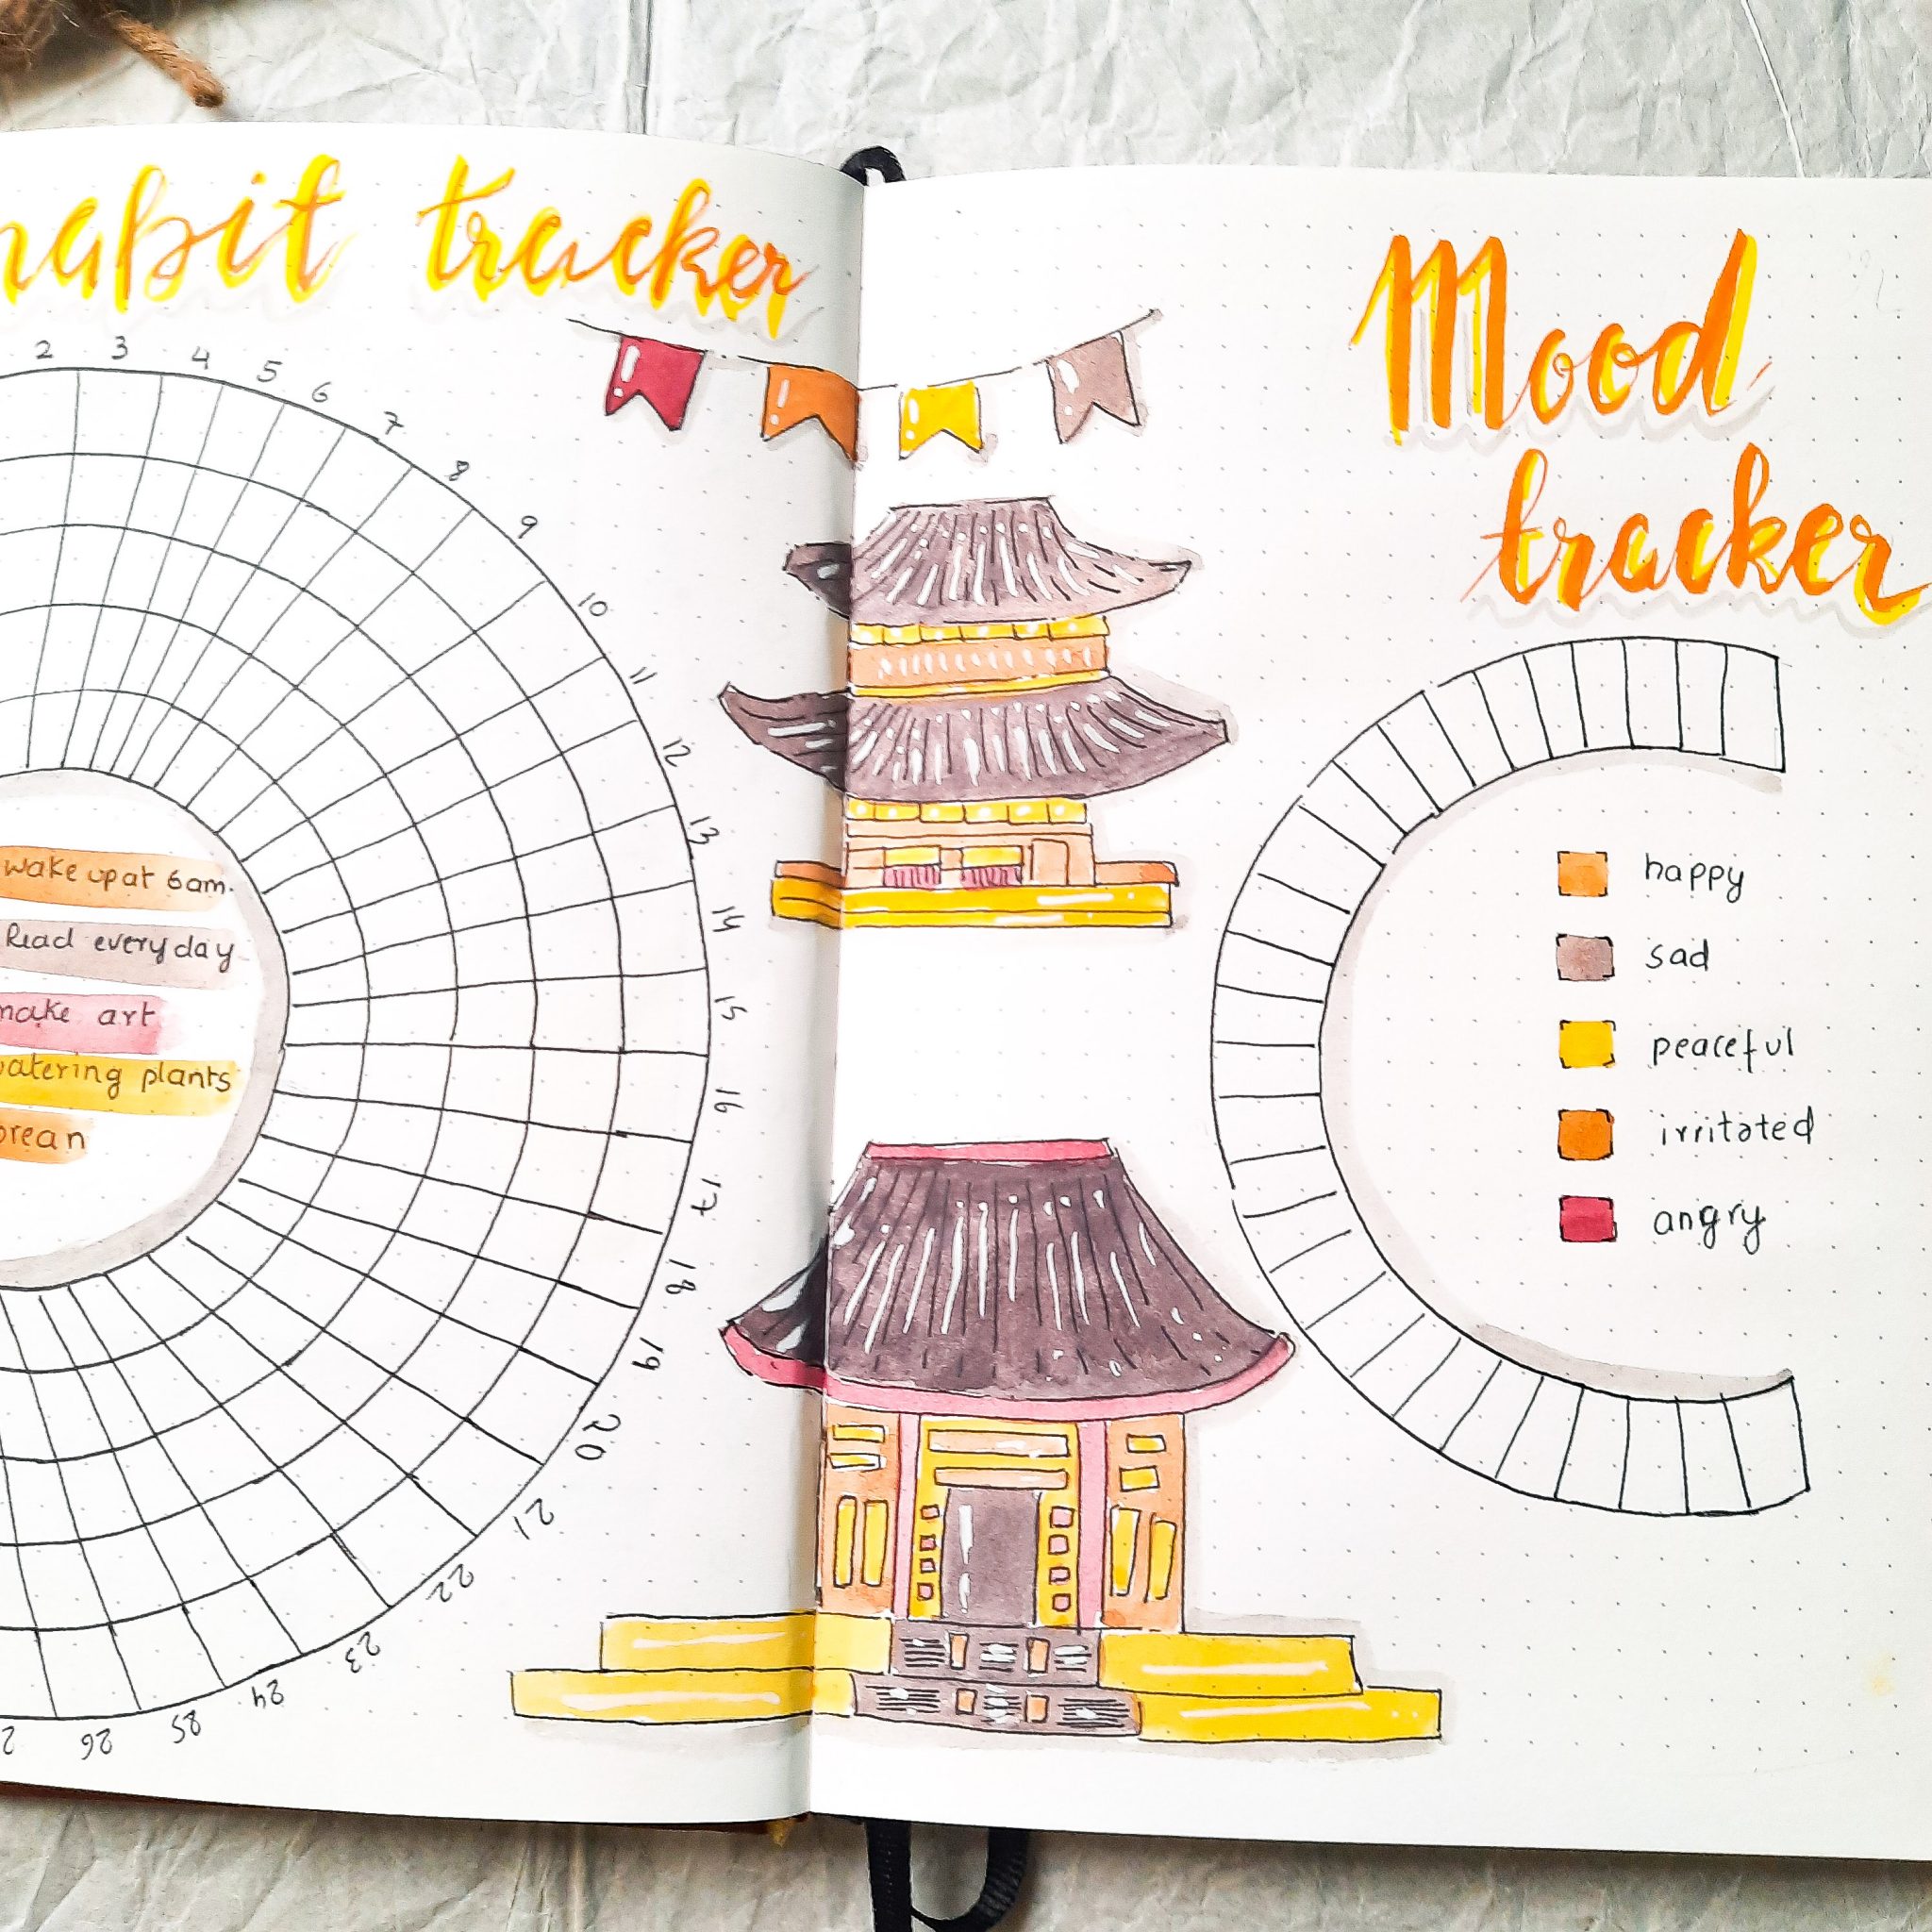 habit tracker
2 3 4 5 6 7 8 9 10 11 12 13 14 15 16 17 18 19 20 21 22 23 24 25 26 2
wake up at 6am.
Read every day
make art
watering plants
orean
Mood
tracker
happy
sad
peaceful
irritated
angry